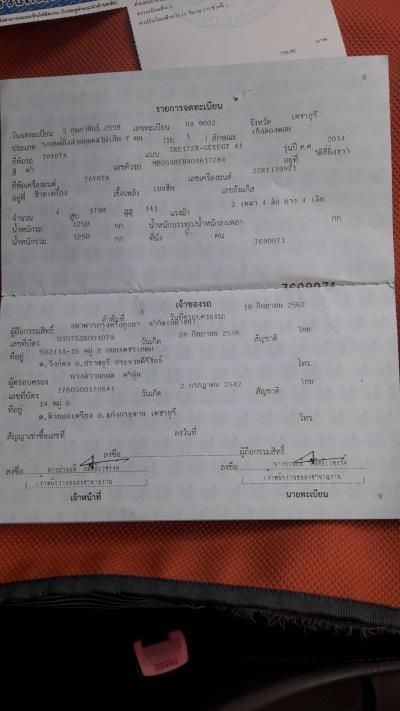 บาท
8
รายการจดทะเบียน
วันจดทะเบียน 5 กุมภาพันธ์ 2558 เลขทะเบียน กล 9002 จังหวัด เพชรบุรี
ประเภท รถยนต์นั่งส่วนบุคคลไม่เกิน 7 คน (รย. 1 ) ลักษณะ เก๋งสองตอน
ยี่ห้อรถ TOYOTA แบบ ZRE172R-GEXEGT A1 รุ่นปี ค.ศ. 2014
สี ดำ เลขตัวรถ MR053REB404617284 อยู่ที่
ยี่ห้อเครื่องยนต์ TOYOTA เลขเครื่องยนต์ 2ZRY139921
อยู่ที่ ซ้ายเครื่อง เชื้อเพลิง เบนซิน เลขถังแก๊ส
จำนวน 4 สูบ 1798 ซีซี 141 แรงม้า 2 เพลา 4 ล้อ ยาง 4 เส้น
น้ำหนักรถ 1250 กก. น้ำหนักบรรทุก/น้ำหนักลงเพลา กก.
น้ำหนักรวม 1250 กก. ที่นั่ง 5 คน
7690071
เจ้าของรถ
ลำดับที่ 3 วันที่ครอบครองรถ 19 กันยายน 2562
ผู้ถือกรรมสิทธิ์ ธนาคารกรุงศรีอยุธยา จำกัด(มหาชน)
เลขที่บัตร 0107536001079 วันเกิด 28 กันยายน 2536 สัญชาติ ไทย
ที่อยู่ 502/14-15 หมู่ 2 ถนนเพชรเกษม
ต.วังก์พง อ.ปราณบุรี ประจวบคีรีขันธ์ โทร.
ผู้ครอบครอง
เลขที่บัตร 1760500170641 วันเกิด 2 กรกฎาคม 2542 สัญชาติ ไทย
ที่อยู่ 14 หมู่ 6
ต.ห้วยแม่เพรียง อ.แก่งกระจาน เพชรบุรี โทร.
สัญญาเช่าซื้อเลขที่ ลงวันที่
ลงชื่อ ผู้ถือกรรมสิทธิ์
ลงชื่อ ลงชื่อ
เจ้าหน้าที่ นายทะเบียน
9